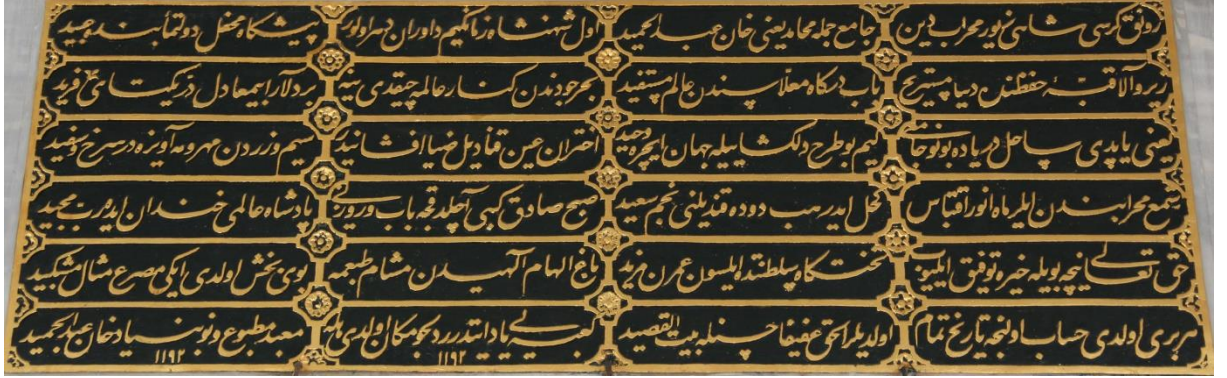 رونق کرسی شاهی زیور محراب دین جامع جمله محامد یعنی خان عبد الحمید اول شهنشاه زمانکیم داوران دهر اولور پیشکاه محفل دولتمآبنده عبید
زیر والا قبۀ حفظنده دنیا مستریح باب درکاه معلاسندن عالم مستفید بحر جودندن کنار عالمه چیقدی ینه بر دلارا بیمعادل در یکتای فرید
یعنی یاپدی ساحل دریاده بو نو جامعی کیم بو طرح دلکشا ایله جهان ایچره وحید اختران عین قنادیل ضیا افشانیدر سیم وزردن مهر ومه آویزه در سرخ وسفید
شمع محرابندن ایلر ماه انور اقتباس کحل ایدر هب دوده قندیلنی نجم سعید صبح صادق کبی آچلدقجه باب وروزنی پادشاه عالمی خندان ایده رب مجید
حق تعالی نیچه بویله خیره توفیق ایلیوب تختکاه سلطنتده ایلسون عمرن مزید باغ الهام الهیدن مشام طبعمه بوی بخش اولدی ایکی مصرع مثال مشکبید
بربری اولدی حساب اولنجه تاریخ تمام اولدیلر الحق عفیفا حسنله بیت القصید کعبه یی یاد ایتدرر بو مکان اولدی ١١٩٢ معبد مطبوع ونو بنیاد خان عبد الحمید ١١٩٢